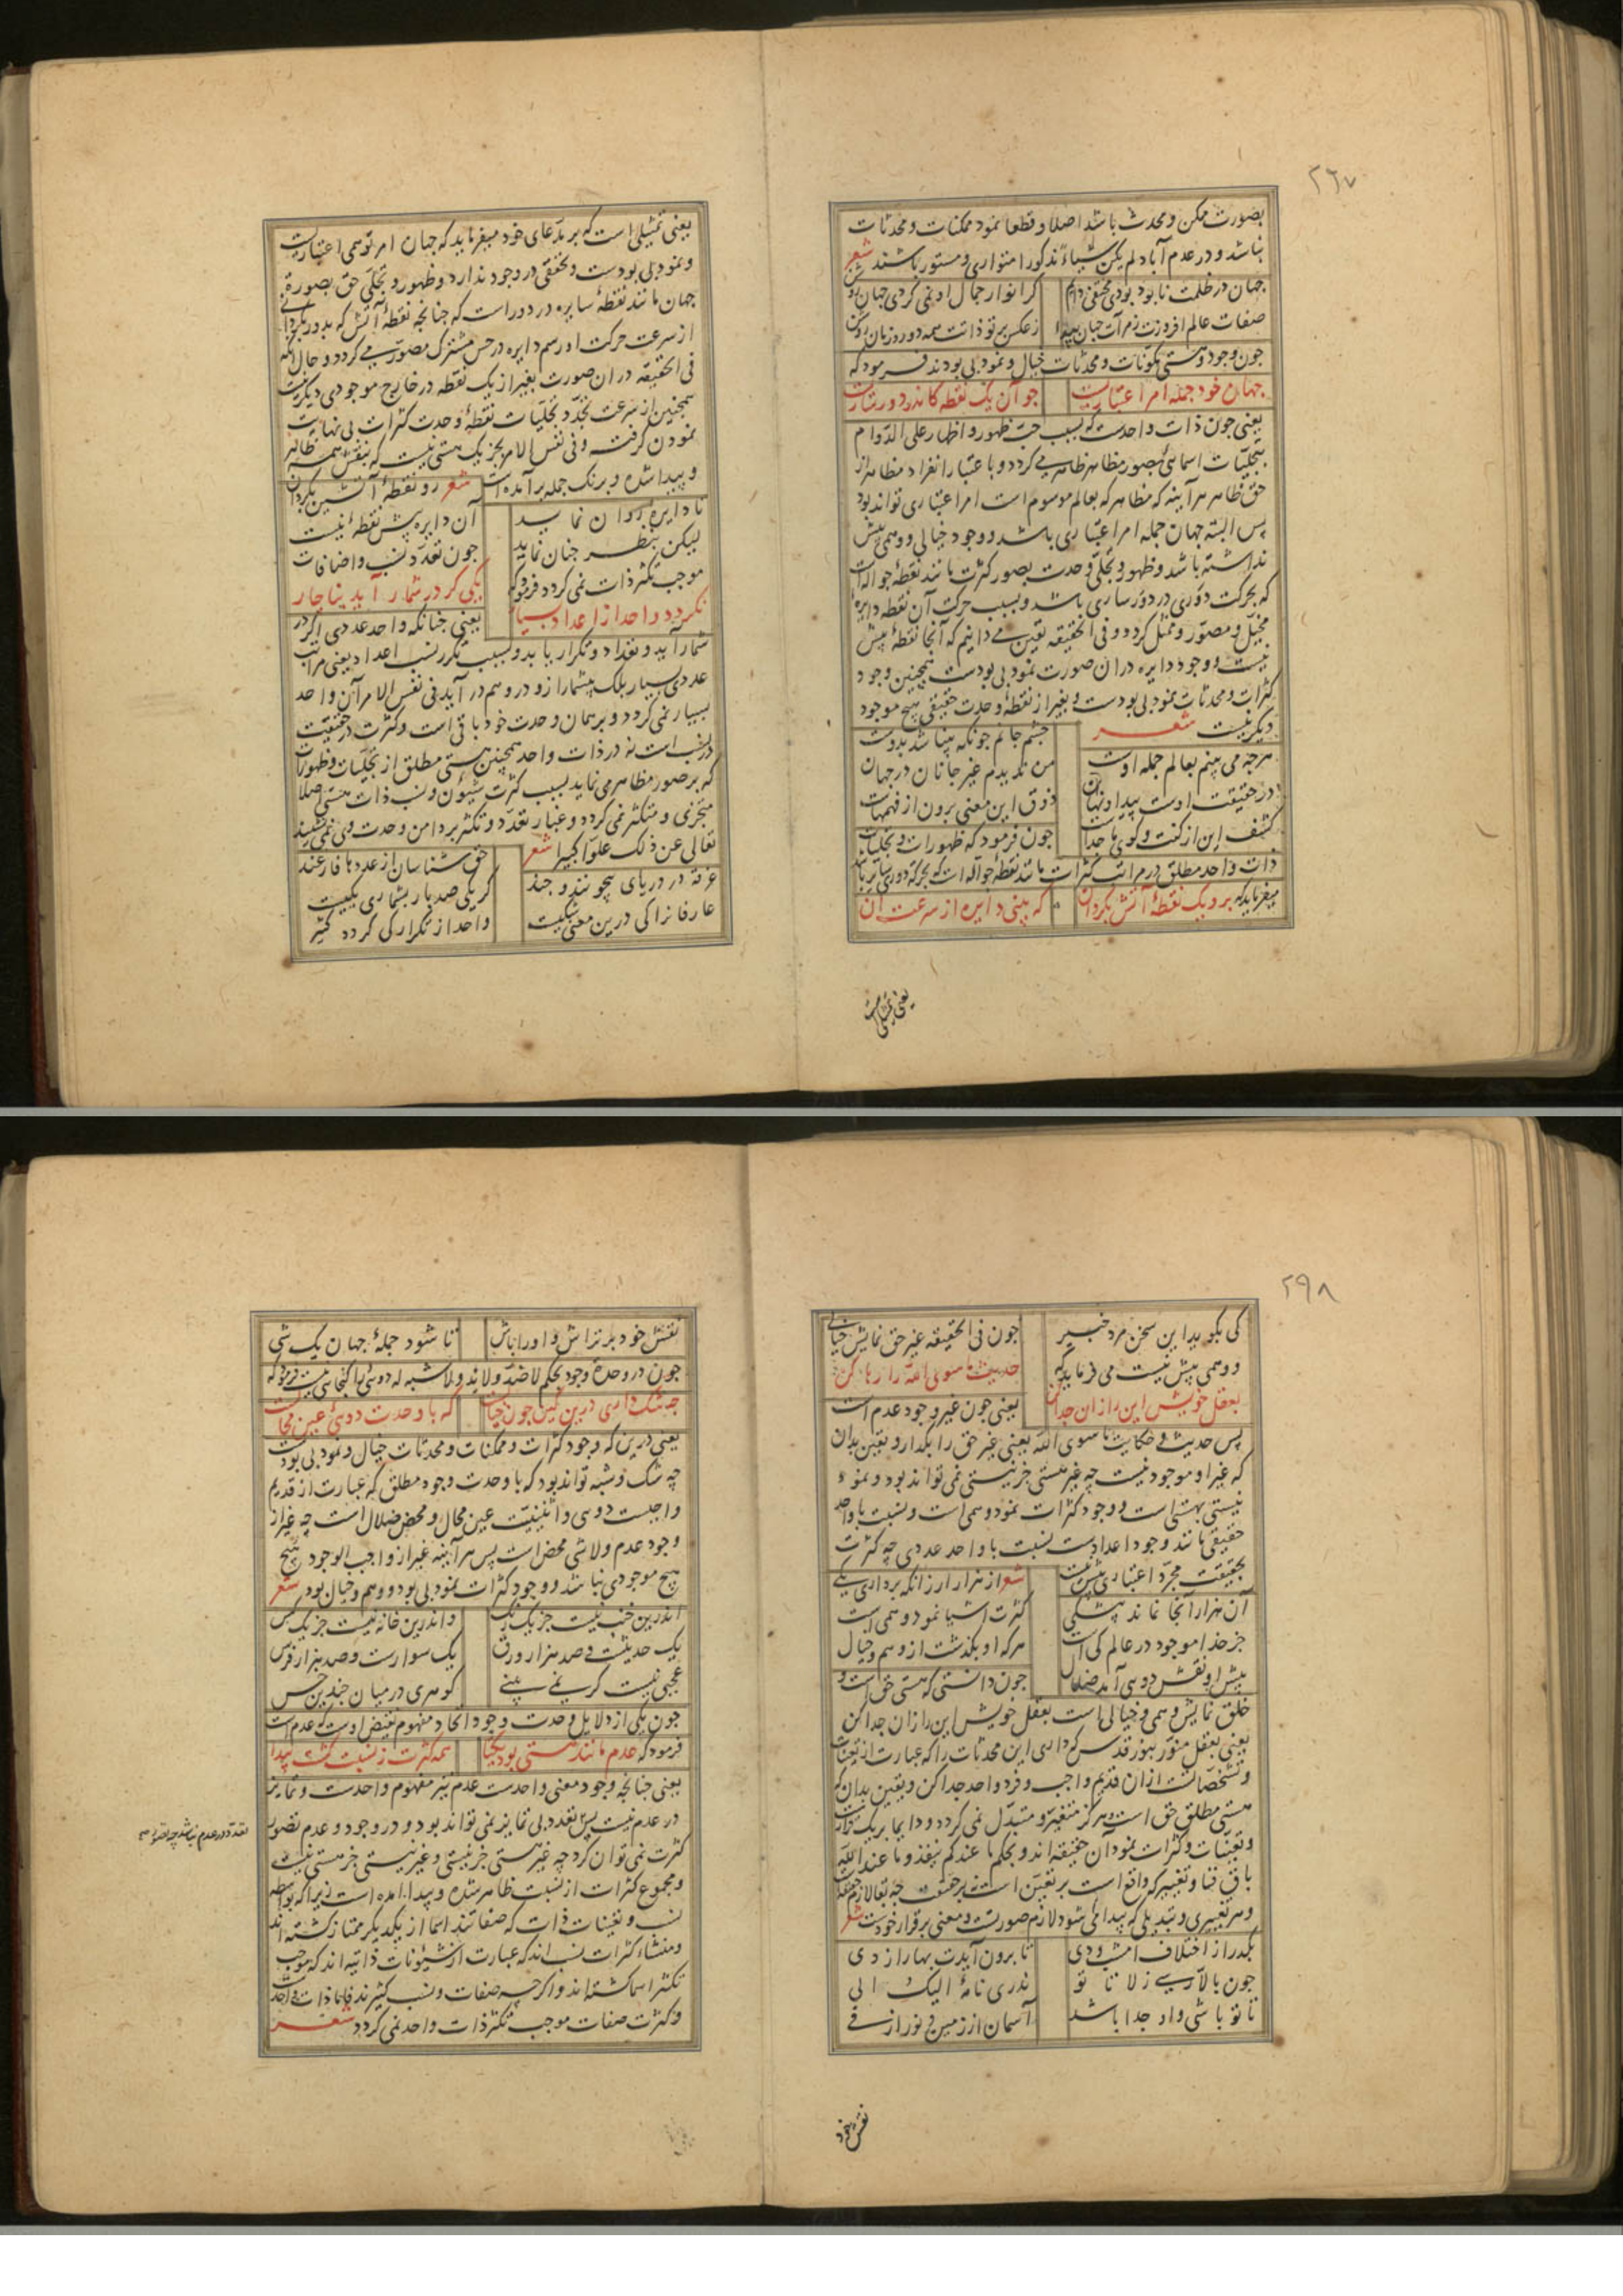 ۲۹۷
بصورت ممکن و محدث باشد اصلا و قطعا نمود ممکنات و محدثات
نباشد و در عدم آباد لم یکن شیاءً مذکورا متواری و مستور باشند شعر
جهان در ظلمت نابود بودی مختفی دایم
کر انوار جمال او نمی کردی جهان روشن
صفات عالم افروزت ز مرآت جهان پیدا
ز عکس پرتو ذاتت همه دور و زمان روشن
چون وجود و هستی مکونات و محدثات خیال و نمود بی بودند فرمود که
جهان خود جمله امر اعتباریست
جو آن یک نقطه کاندر دور ساریست
یعنی چون ذات واحدست که بسبب حب ظهور و اظهار علی الدوام
بتجلیات اسمائی بصور مظاهر ظاهر می کردد و با عتبار انفراد مظاهر از
حق ظاهر هر آینه که مظاهر که بعالم موسوم است امر اعتباری تواند بود
پس البته جهان جمله امر اعتباری باشد و وجود خیالی و وهمی بیش
نداشته باشد و ظهور و تجلی وحدت بصور کثرت مانند نقطهٔ جواله است
که بحرکت دوری در دور ساری باشد و بسبب حرکت آن نقطه دایرهٔ
مخیل و مصور و ممثل کردد و فی الحقیقه یقین می دانیم که آنجا نقطهٔ بیش
نیست و وجود دایره در ان صورت نمود بی بودست همچنین وجود
کثرات و محدثات نمود بی بودست و بغیر از نقطهٔ وحدت حقیقی هیچ موجود
دیکر نیست شعر
چشم جانم چونکه بینا شد بدوست
هر چه می بینم بعالم جمله اوست
من ندیدم غیر جانان در جهان
در حقیقت اوست پیدا و نهان
ذوق این معنی برون از فهمهاست
کشف این از کفت و کوی ما جداست
چون فرمود که ظهورات و تجلیات
ذات واحد مطلق در مراتب کثرات مانند نقطهٔ جواله است که بحرکة دوری سایر باشد
میفرماید که برو یک نقطهٔ آتش بکردان
که بینی دایره از سرعت آن
یعنی تمثیلی است
یعنی تمثیلی است که بر مدعای خود میفرماید که جهان امر توهمی اعتباریست
و نمود بی بودست و تحققی در وجود ندارد و ظهور و تجلی حق بصورة
جهان مانند نقطهٔ سایره در دور است که چنانچه نقطهٔ آتش که بدور بکردانی
از سرعت حرکت او رسم دایره در حس مشترک مصور می کردد و حال آنکه
فی الحقیقه در ان صورت بغیر از یک نقطه در خارج موجودی دیکر نیست
همچنین از سرعت تجدد تجلیات نقطهٔ وحدت کثرات بی نهایت
نمودن کرفت و فی نفس الامر بجز یک هستی نیست که بنقش همه ظاهر
و پیدا شده و برنک جمله بر آمده است شعر رو نقطهٔ آتشین بکردان
تا دایرهٔ روان نماید
آن دایره بیش نقطهٔ نیست
لیکن بنظر چنان نماید
چون تعدد نسب و اضافات
موجب تکثر ذات نمی کردد فرمود که
یکی کر در شمار آید بناچار
نکردد واحد از اعداد بسیار
یعنی چنانکه واحد عددی اکر در
شمار آید و تعداد و تکرار یابد و بسبب تکرر نسب اعداد یعنی مراتب
عددی بسیار بلک بیشمار ازو در وهم در آید فی نفس الامر آن واحد
بسیار نمی کردد و بر همان وحدت خود باقی است و کثرت در حقیقت
در نسب است نه در ذات واحد همچنین هستی مطلق از تجلیات و ظهورات
که بر صور مظاهر می نماید بسبب کثرت شیون و نسب ذات هستی اصلا
متجزی و متکثر نمی کردد و غبار تعدد و تکثر بر دامن وحدت وی نمی نشیند
تعالی عن ذلک علوا کبیرا شعر
حق شناسان از عددها فارغند
غرقه در دریای بیچونند و چند
کر یکی صد بار بشماری یکیست
عارفانرا کی درین معنی شکیست
واحد از تکرار کی کردد کثیر
۲۹۸
کی بکوید این سخن مرد خبیر
چون فی الحقیقه غیر حق نمایش خیالی
و وهمی بیش نیست می فرماید که
حدیث ما سوی الله را رها کن
بعقل خویش این را زان جدا کن
یعنی چون غیر وجود عدم است
پس حدیث و حکایت ما سوی الله یعنی غیر حق را بکذار و یقین بدان
که غیر او موجود نیست چه غیر هستی جز نیستی نمی تواند بود و نمود
نیستی بهستی است و وجود کثرات نمود وهمی است و نسبت با واحد
حقیقی مانند وجود اعدادست نسبت با واحد عددی چه کثرت
بحقیقت مجرد اعتباری بیش نیست
شعر از هزار ار زانکه برداری یکی
آن هزار آنجا نماند بیشکی
کثرت اشیا نمود وهمی است
جز خدا موجود در عالم کی است
هر که او بکذشت از وهم و خیال
پیش او نقش دوی آمد ضلال
چون دانستی که هستی حق است و
خلق نمایش وهمی و خیالی است بعقل خویش این را زان جدا کن
یعنی بعقل منور بنور قدس که داری این محدثات را که عبارت از تعینات
و تشخصات است از ان قدیم واجب و فرد واحد جدا کن و یقین بدان که
هستی مطلق حق است و هرکز متغیر و متبدل نمی کردد و دایما بر یک قرارست
و تعینات و کثرات نمود آن حقیقه اند و بحکم ما عندکم ینفد و ما عند الله
باق فنا و تغییر که واقع است بر تعین است نه بر حقیقت
و هر تغییری و تبدیلی که پیدا می شود لازم صورتست و معنی بر قرار خودست شعر
بکذر از اختلاف امشب و دی
تا برون آیدت بهار از دی
چون بالا رسی ز لا تا تو
ندری نامهٔ الیک الی
تا تو باشی و او جدا باشد
آسمان از زمین و نور از فی
نقش خود
نقش خود بر تراش و او را باش
تا شود جملهٔ جهان یک شی
چون در وحدة وجود بحکم لا ضد و لا ند و لا شبه له دوئی را کنجائی نیست فرمود که
چه شک داری درین کین چون خیالست
که با وحدت دوئی عین محالست
یعنی درین که وجود کثرات و ممکنات و محدثات خیال و نمود بی بودست
چه شک و شبه تواند بود که با وحدت وجود مطلق که عبارت از قدیم
واجبست دوی و اثنینیت عین محال و محض ضلال است چه غیر از
وجود عدم و لا شی محض است پس هر آینه غیر از واجب الوجود هیچ
هیچ موجودی نباشد و وجود کثرات نمود بی بود و وهم و خیال بود شعر
اندرین خنب نیست جز یک رنک
و اندرین خانه نیست جز یک کس
یک حدیثست و صد هزار ورق
یک سوارست و صد هزار فرس
عجبی نیست کر نمی بینی
کوهری در میان چندین خس
چون یکی از دلایل وحدت وجود اتحاد مفهوم نقیض اوست که عدم است
فرمود که عدم مانند هستی بود یکتا
همه کثرت ز نسبت کشت پیدا
یعنی چنانچه وجود معنی واحدست عدم نیز مفهوم واحدست و تمایز
در عدم نیست پس تعدد بی تمایز نمی تواند بود و در وجود و عدم تصور
کثرت نمی توان کرد چه غیر هستی جز نیستی و غیر نیستی جز هستی نیست
و مجموع کثرات از نسبت ظاهر شده و پیدا آمده است زیرا که بواسطه
نسب و تعینات ذات که صفاتند اسما از یکدیکر ممتاز کشته اند
و منشاء کثرات نسب اند که عبارت از شیونات ذاتیه اند که موجب
تکثر اسما کشته اند و اکرچه صفات و نسب کثیرند فاما ذات واحدست
و کثرت صفات موجب تکثر ذات واحد نمی کردد شعر